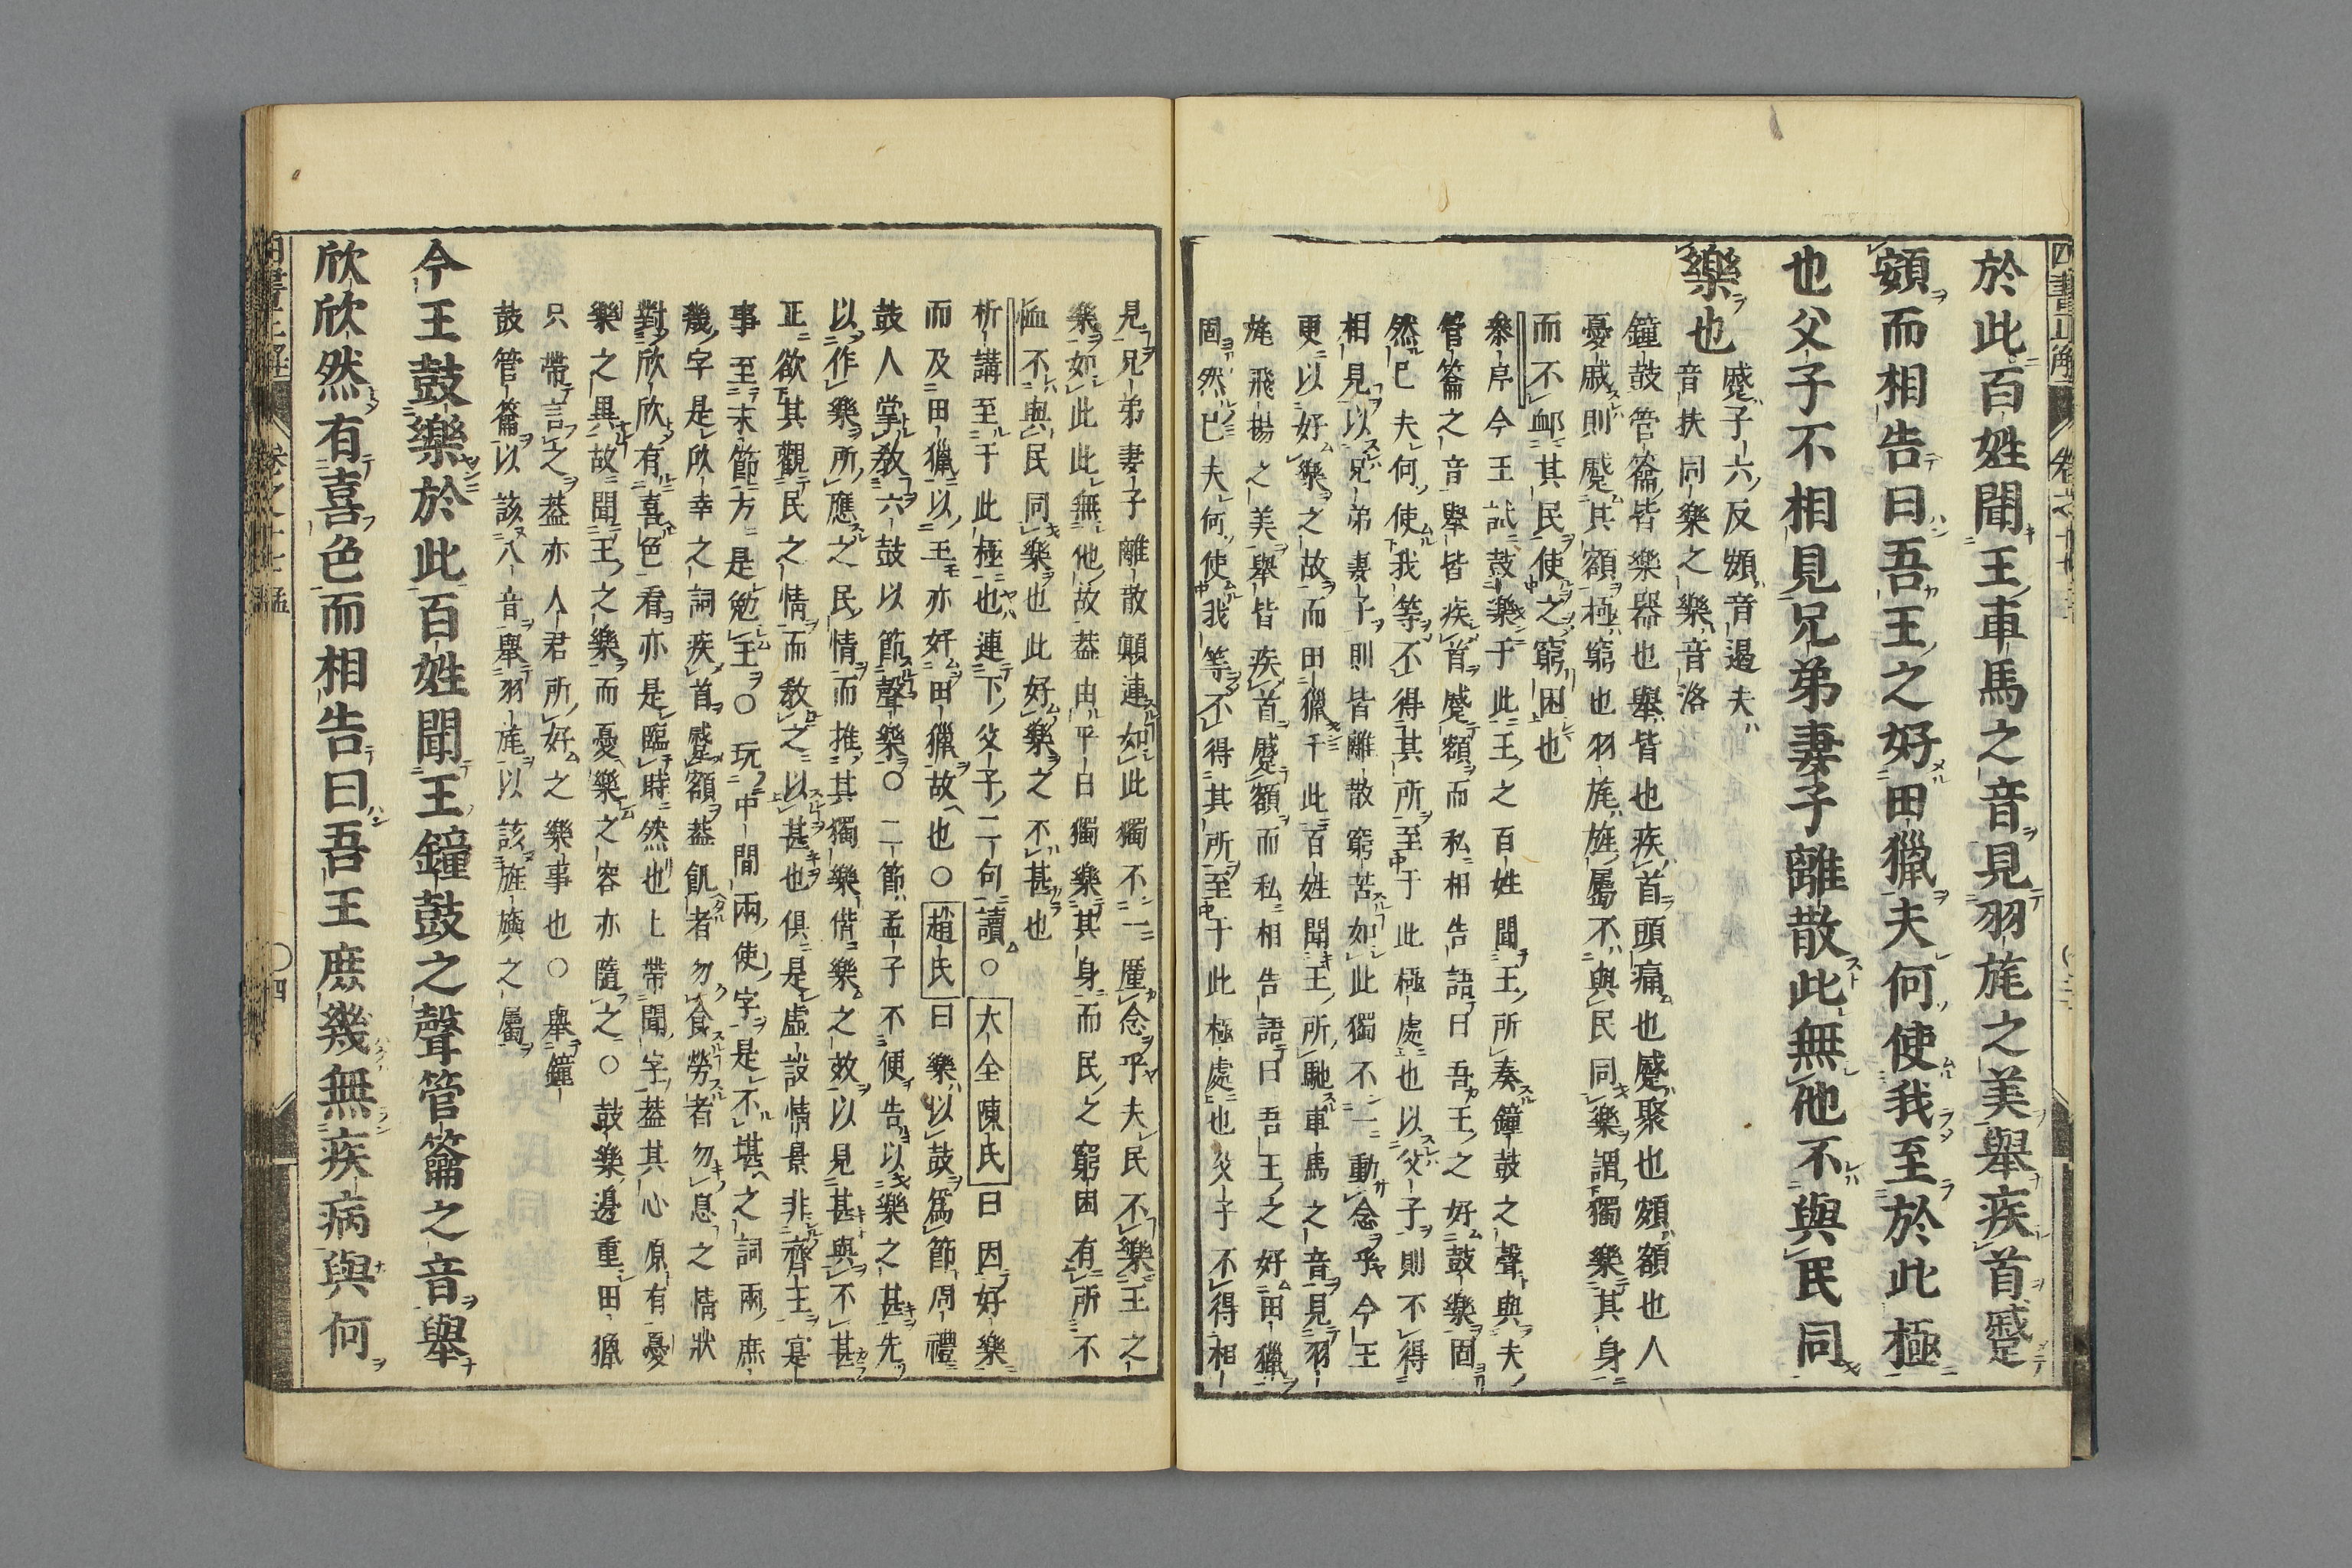 於此百姓聞王車馬之音見羽旄之美舉疾首蹙
頞而相告曰吾王之好田獵夫何使我至於此極
也父子不相見兄弟妻子離散此無他不與民同
樂也
蹙子六反頞音遏夫
音扶同樂之樂音洛
鐘鼓管籥皆樂器也舉皆也疾首頭痛也蹙聚也頞額也人
憂戚則蹙其額極窮也羽旄旌屬不與民同樂謂獨樂其身
而不䘏其民使之窮困也
叅序今王試鼓樂于此王之百姓聞王所奏鐘鼓之聲與夫
管籥之音舉皆疾首蹙額而私相告語曰吾王之好鼓樂固
然已夫何使我等不得其所至于此極處也以父子則不得
相見以兄弟妻子則皆離散窮苦如此獨不一動念乎今王
更以好樂之故而田獵于此百姓聞王所馳車馬之音見羽
旄飛揚之美舉皆疾首蹙額而私相告語曰吾王之好田獵
固然已夫何使我等不得其所至于此極處也父子不得相
見兄弟妻子離散顛連如此獨不一厪念乎夫民不樂王之
樂如此此無他故葢由平日獨樂其身而民之窮困有所不
恤不與民同樂也此好樂之不甚也
析講至于此極也連下父子二句讀○大全陳氏曰因好樂
而及田獵以王亦好田獵故也○趙氏曰樂以鼓爲節周禮
鼓人掌敎六鼓以節聲樂○二節孟子不便告以樂之甚先
以作樂所應之民情而推其獨樂偕樂之效以見甚與不甚
正欲其觀民之情而敎之以甚也俱是虛設情景非齊王寔
事至末節方是勉王○玩中間兩使字是不堪之詞兩庶
幾字是欣幸之詞疾首蹙額葢飢者勿食勞者勿息之情狀
對欣欣有喜色看亦是臨時然也上帶聞字葢其心原有憂
樂之異故聞王之樂而憂樂之容亦隨之○鼓樂邊重田獵
只帶言之葢亦人君所好之樂事也○舉鐘
鼓管籥以該八音舉羽旄以該旌旟之屬
今王鼓樂於此百姓聞王鐘鼓之聲管籥之音舉
欣欣然有喜色而相告曰吾王庶幾無疾病與何